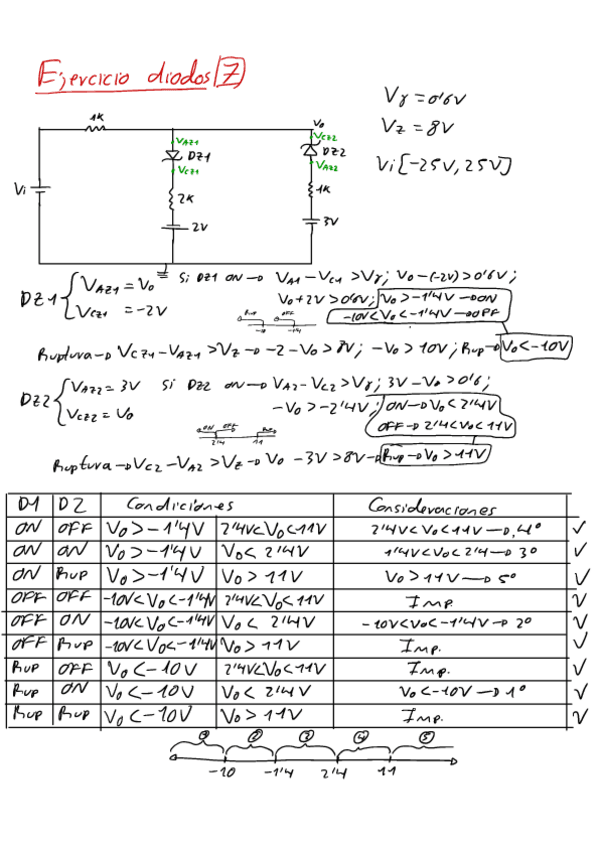 Ejercicio diodos (Z)
Vγ = 0'6V
VZ = 8V
Vi [-25V, 25V]
1K
Vo
VAZ1
DZ1
VCZ1
VCZ2
DZ2
VAZ2
Vi
2K
1K
2V
3V
DZ1 { VAZ1 = Vo
VCZ1 = -2V
Si DZ1 ON → VA1 - VC1 > Vγ; Vo - (-2V) > 0'6V;
Vo + 2V > 0'6V; Vo > -1'4V → ON
-10V < Vo < -1'4V → OFF
Rup OFF
-10 -1'4
Ruptura → VCZ1 - VAZ1 > VZ → -2 - Vo > 8V; -Vo > 10V; Rup → Vo < -10V
DZ2 { VAZ2 = 3V
VCZ2 = Vo
Si DZ2 ON → VA2 - VC2 > Vγ; 3V - Vo > 0'6;
-Vo > -2'4V; ON → Vo < 2'4V
OFF → 2'4 < Vo < 11V
ON OFF Rup
2'4 11
Ruptura → VC2 - VA2 > VZ → Vo - 3V > 8V → Rup → Vo > 11V
D1 D2 Condiciones Consideraciones
ON OFF Vo > -1'4V 2'4V < Vo < 11V 2'4V < Vo < 11V → 4º ✓
ON ON Vo > -1'4V Vo < 2'4V 1'4V < Vo < 2'4 → 3º ✓
ON Rup Vo > -1'4V Vo > 11V Vo > 11V → 5º ✓
OFF OFF -10V < Vo < -1'4V 2'4V < Vo < 11V Imp. ✓
OFF ON -10V < Vo < -1'4V Vo < 2'4V -10V < Vo < -1'4V → 2º ✓
OFF Rup -10V < Vo < -1'4V Vo > 11V Imp. ✓
Rup OFF Vo < -10V 2'4V < Vo < 11V Imp. ✓
Rup ON Vo < -10V Vo < 2'4V Vo < -10V → 1º ✓
Rup Rup Vo < -10V Vo > 11V Imp. ✓
① ② ③ ④ ⑤
-10 -1'4 2'4 11